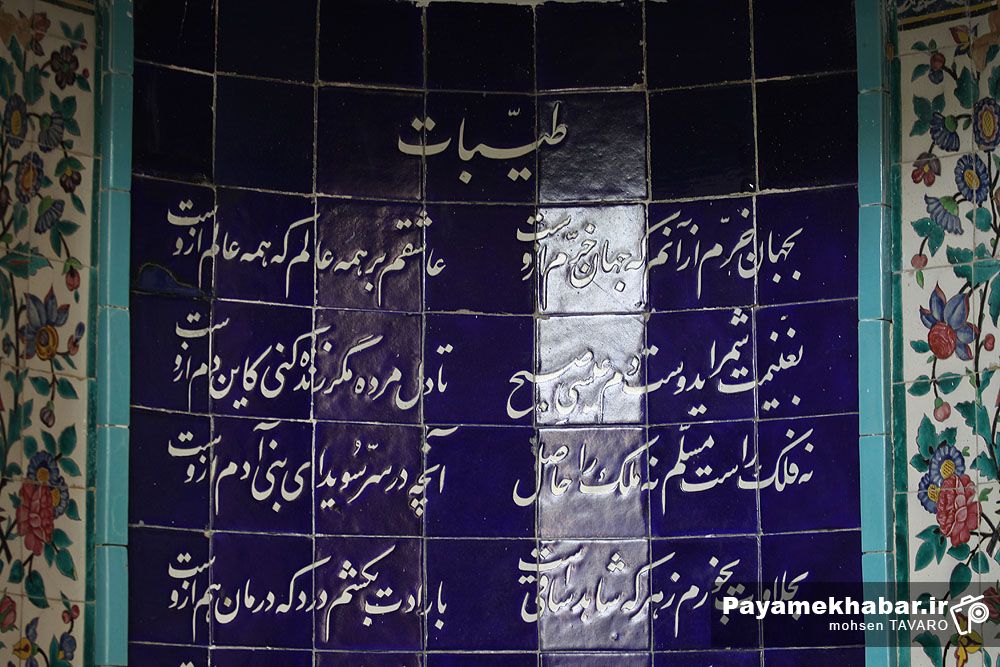 طیّبات
بجهان خرّم از آنم که جهان خرّم ازوست عاشقم بر همه عالم که همه عالم ازوست
بغنیمت شمر ای دوست دم عیسی صبح تا دل مرده مگر زنده کنی کاین دم ازوست
نه فلک راست مسلّم نه ملک را حاصل آنچه در سرّ سُویدای بنی آدم ازوست
بحلاوت بخورم زهر که شاهد ساقیست بارادت بکشم درد که درمان هم ازوست
Payamekhabar.ir
mohsen TAVARO